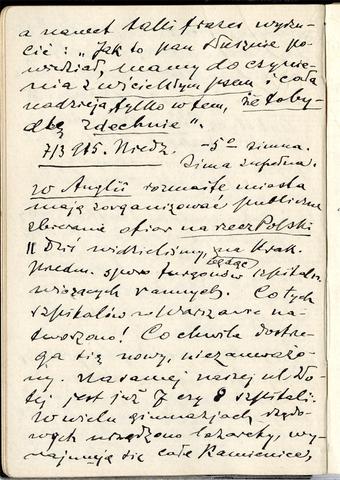 a nawet taki frazes wyrzu-
cić: „Jak to pan słusznie po-
wiedział, mamy do czynie-
nia z wściekłym psem i cała
nadzieja tylko w tem, że to by-
dlę zdechnie".
7/3 915. Niedz. -5° zimna.
Zima zupełna.
W Anglii rozmaite miasta
mają zorganizować publiczne
zbieranie ofiar na rzecz Polski
|| Dziś widzieliśmy, będąc na Krak.
Przedm. sporo furgonów szpitaln.
wiozących rannych. Co tych
szpitalów w Warszawie na-
tworzono! Co chwila dostrze-
ga się nowy, niezauważo-
ny. Na samej naszej ul.
jest już 7 czy 8 szpitali.
W wielu gimnazjach rządo-
wych urządzono lazarety, wy-
najmują się całe kamienice,